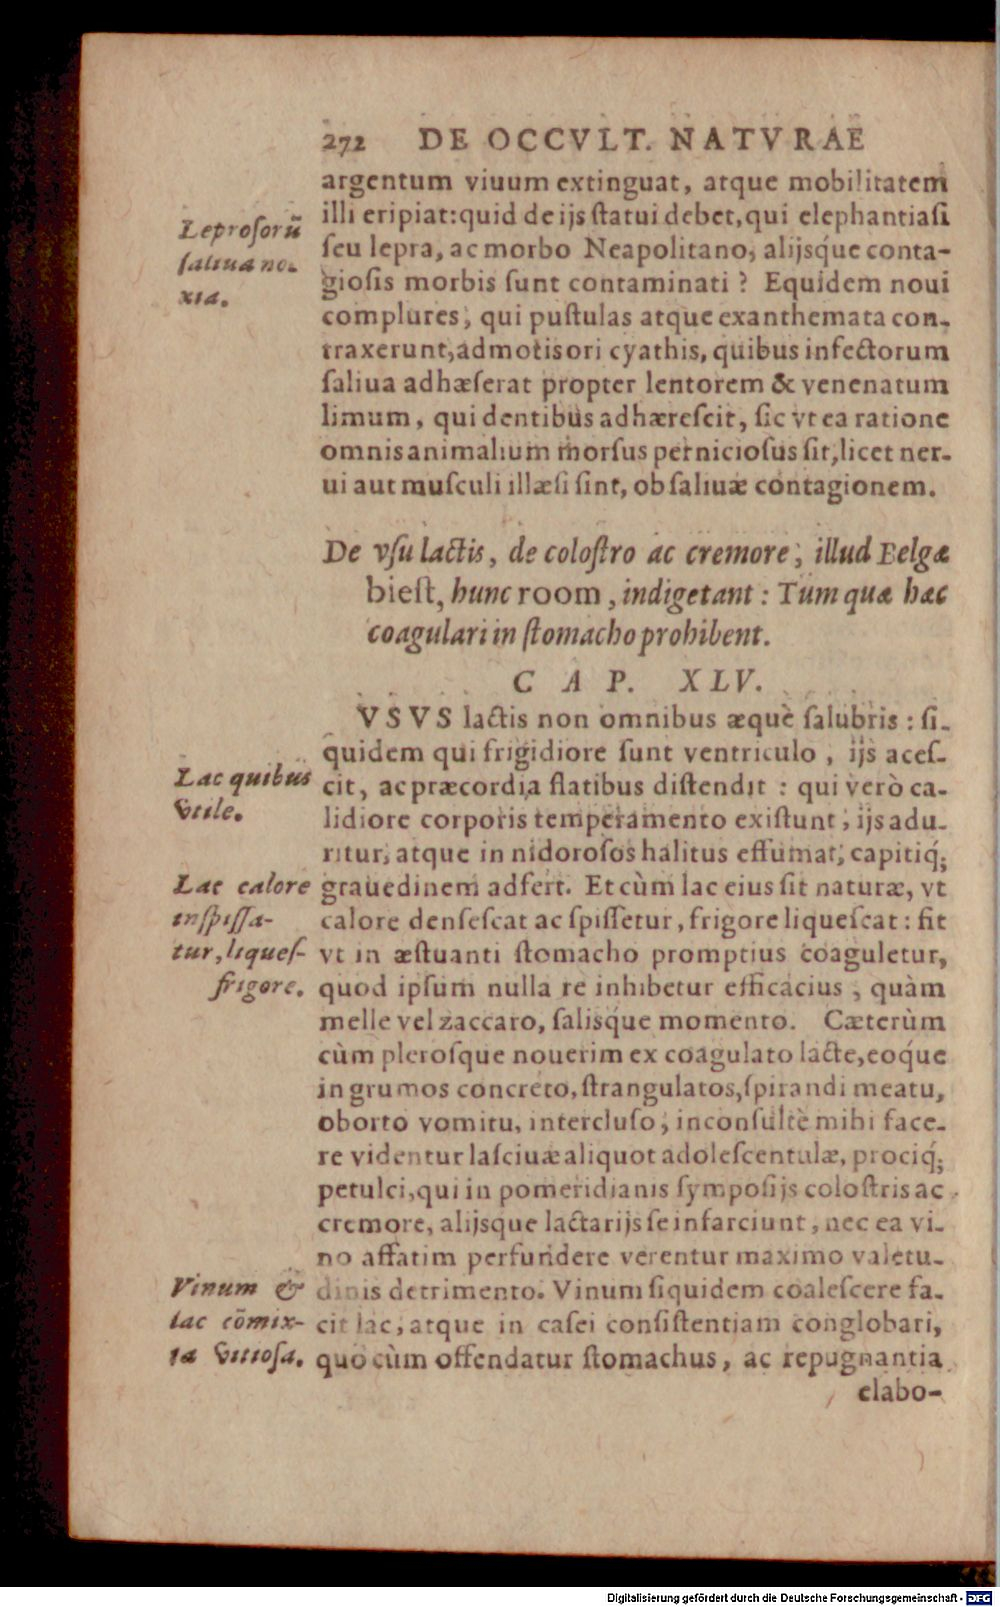 272 DE OCCVLT. NATVRAE
argentum viuum extinguat, atque mobilitatem
illi eripiat: quid de ijs statui debet, qui elephantiasi
seu lepra, ac morbo Neapolitano, alijsq́ue conta-
giosis morbis sunt contaminati? Equidem noui
complures, qui pustulas atque exanthemata con-
traxerunt, admotis ori cyathis, quibus infectorum
saliua adhæserat propter lentorem & venenatum
limum, qui dentibus adhærescit, sic vt ea ratione
omnis animalium morsus perniciosus sit, licet ner-
ui aut musculi illæsi sint, ob saliuæ contagionem.
Leprosorū
saliua no-
xia.
De vsu lactis, de colostro ac cremore, illud Belgæ
biest, hunc room, indigetant: Tum quæ hæc
coagulari in stomacho prohibent.
CAP. XLV.
VSVS lactis non omnibus æquè salubris: si-
quidem qui frigidiore sunt ventriculo, ijs aces-
cit, ac præcordia flatibus distendit: qui verò ca-
lidiore corporis temperamento existunt, ijs adu-
ritur, atque in nidorosos halitus effumat, capitiq́;
grauedinem adfert. Et cùm lac eius sit naturæ, vt
calore densescat ac spissetur, frigore liquescat: fit
vt in æstuanti stomacho promptius coaguletur,
quod ipsum nulla re inhibetur efficacius, quàm
melle vel zaccaro, salisque momento. Cæterùm
cùm plerosque nouerim ex coagulato lacte, eoq́ue
in grumos concreto, strangulatos, spirandi meatu,
oborto vomitu, intercluso, inconsultè mihi face-
re videntur lasciuæ aliquot adolescentulæ, prociq́;
petulci, qui in pomeridianis symposijs colostris ac
cremore, alijsque lactarijs se infarciunt, nec ea vi-
no affatim perfundere verentur maximo valetu-
dinis detrimento. Vinum siquidem coalescere fa-
cit lac, atque in casei consistentiam conglobari,
quo cùm offendatur stomachus, ac repugnantia
elabo-
Lac quibus
vtile.
Lac calore
inspissa-
tur, liques-
frigore.
Vinum &
lac cōmix-
ta vitiosa.
Digitalisierung gefördert durch die Deutsche Forschungsgemeinschaft - DFG